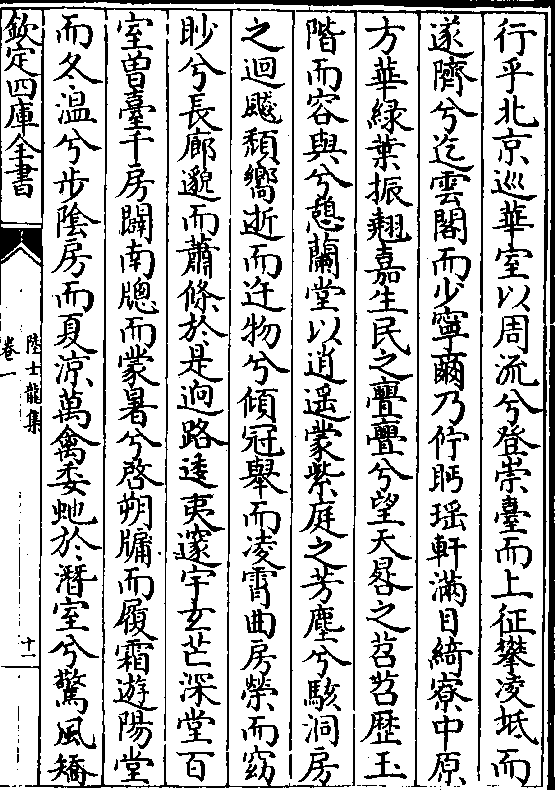 行乎北京巡華室以周流兮登崇臺而上征攀凌坻而
遂隮兮迄雲閣而少寧爾乃佇眄瑶軒滿目綺寮中原
方華緑葉振翹嘉生民之亹亹兮望天晷之苕苕歴玉
階而容與兮憩蘭堂以逍遥蒙紫庭之芳塵兮駭洞房
之迴飈頽嚮逝而迕物兮傾冠舉而凌霄曲房榮而窈
眇兮長廊邈而蕭條於是迥路逶夷邃宇玄芒深堂百
室曽臺千房闢南牕而蒙暑兮啓朔牖而履霜遊陽堂
而冬温兮步陰房而夏涼萬禽委虵於潛室兮驚風矯
欽定四庫全書
陸士龍集
卷一
十一